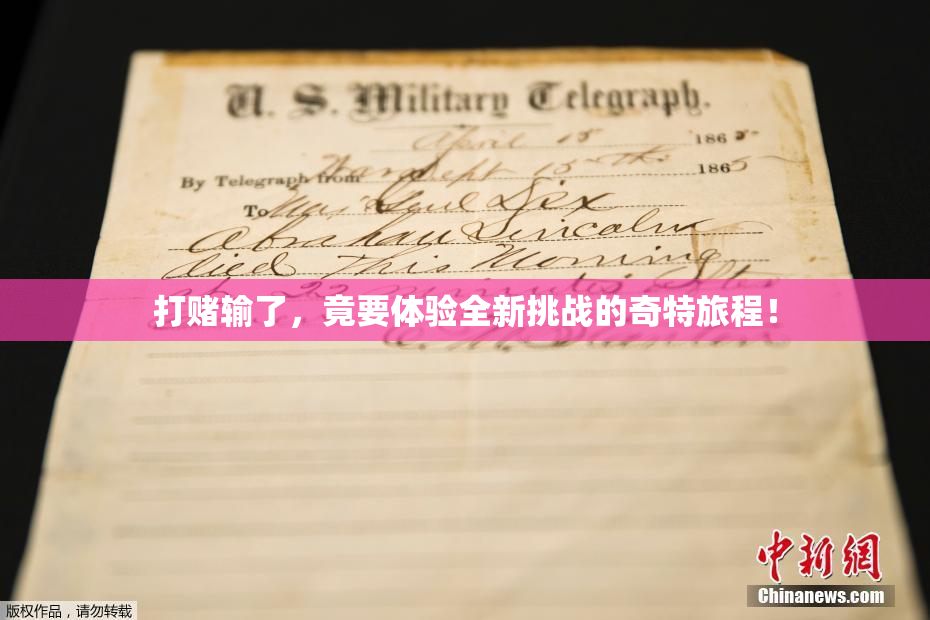 U. S. Military Telegraph.
April 15 1865
By Telegraph from War Dept 15th 1865
To Maj Genl Dix
Abraham Lincoln
died this Morning
at 22 minutes after
打赌输了，竟要体验全新挑战的奇特旅程！
E. M. Stanton
中新网
版权作品，请勿转载
Chinanews.com